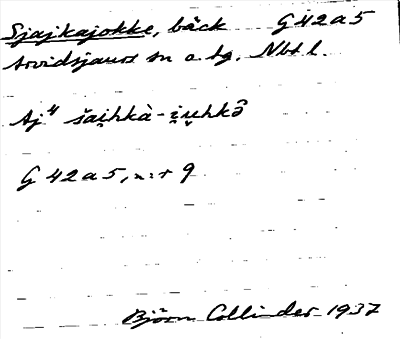 Sjajkajokke, bäck G 42 a 5
Arvidsjaurs sn o. tg. Nbt l.
Aj⁴ šai̯hkà-i̯u̯hkô
G 42 a 5, n:r 9
Björn Collinder 1937